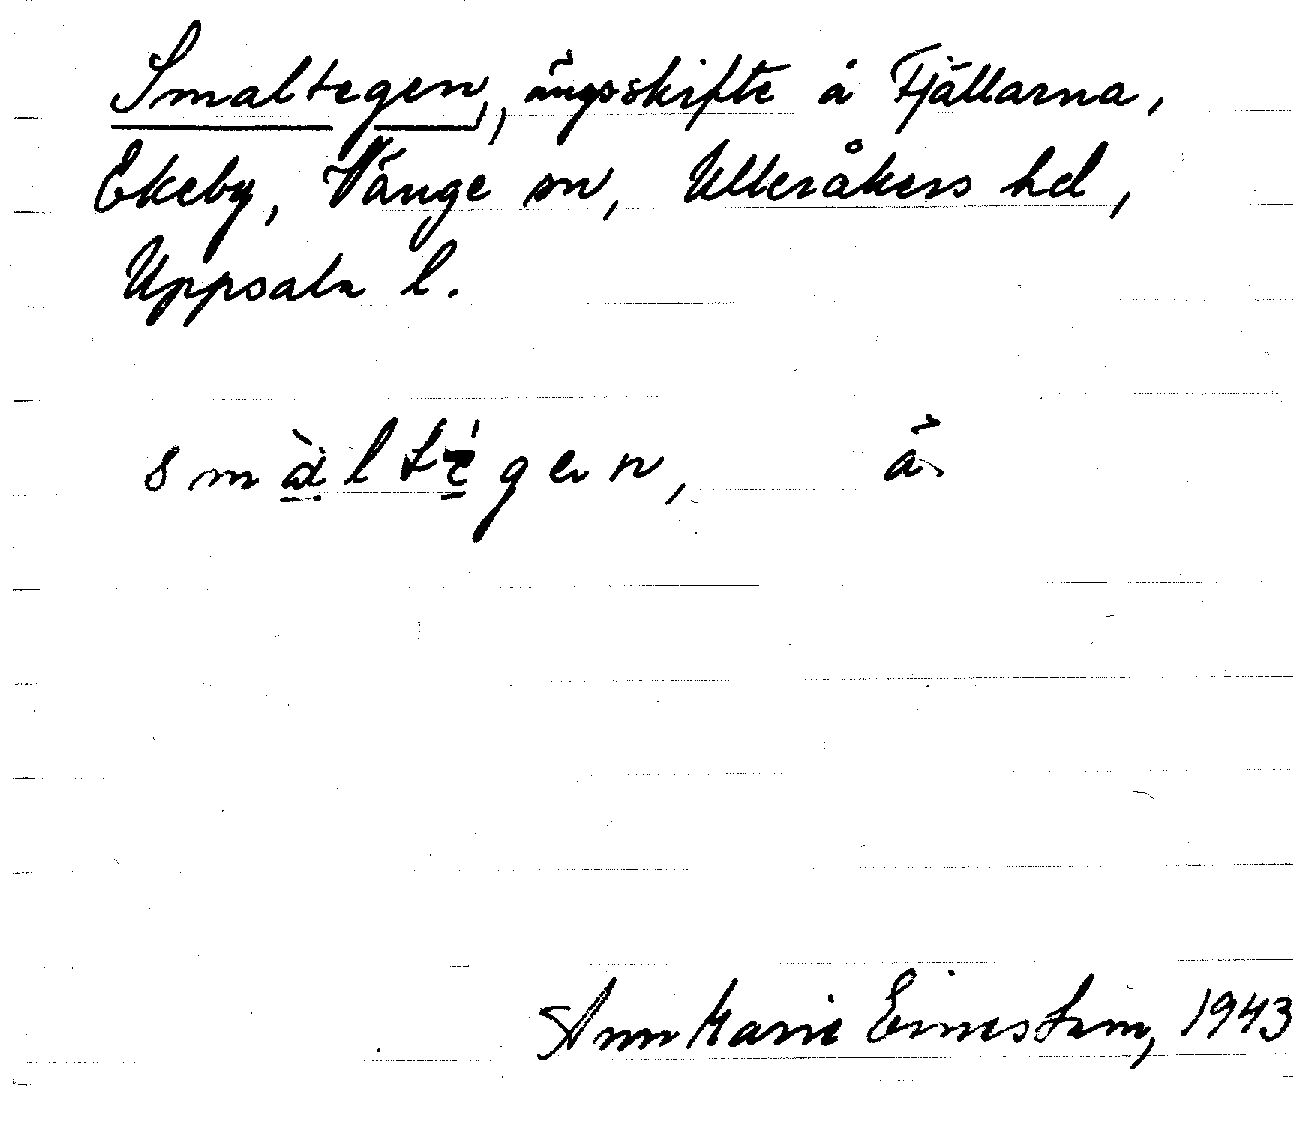 Smaltegen, ängsskifte å Fjällarna,
Ekeby, Vänge sn, Ulleråkers hd,
Uppsala l.
smàltégen, å
AnnMarie
1943